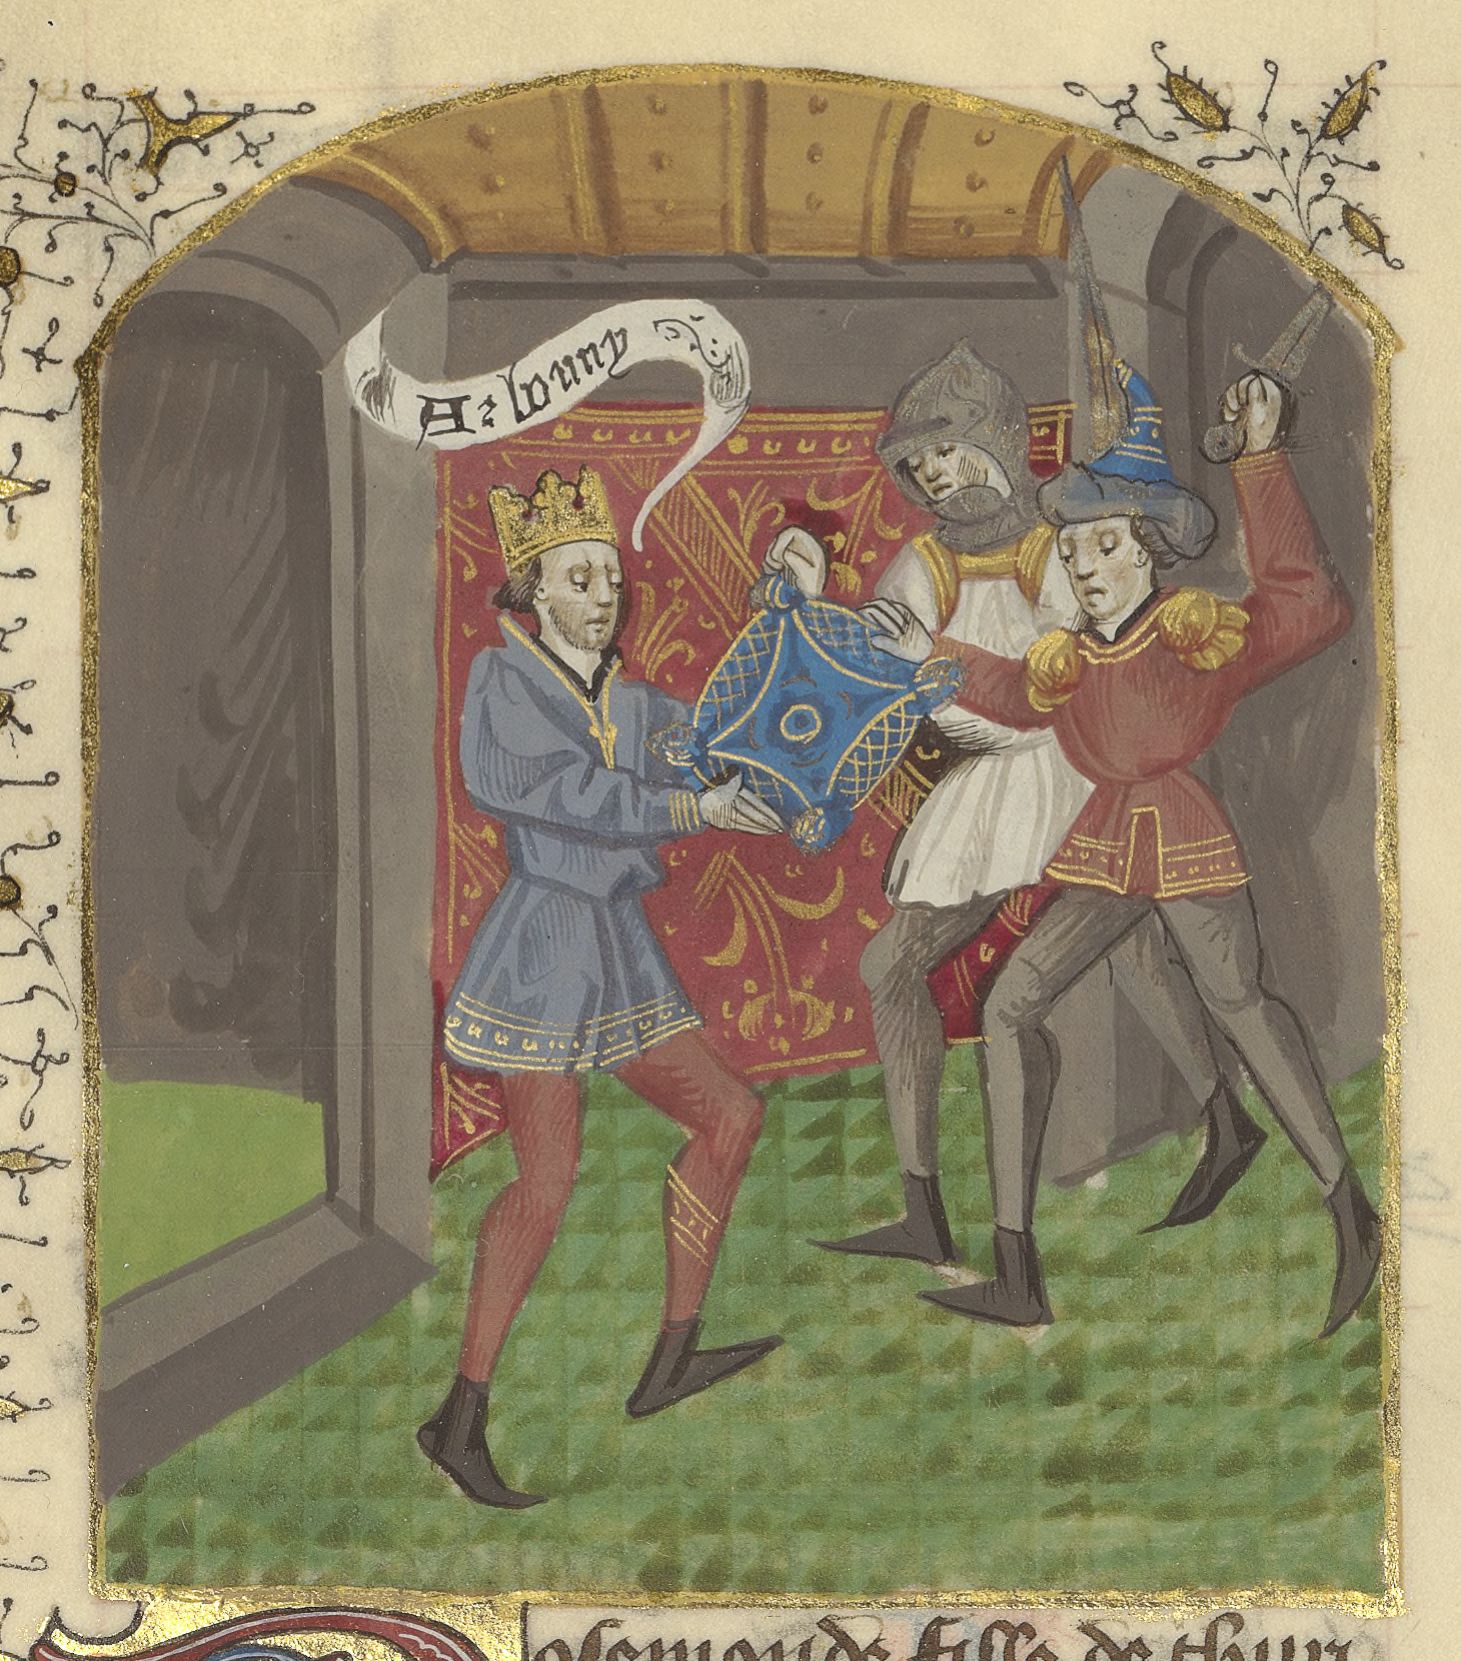 Az louny
osemonde fille de thur